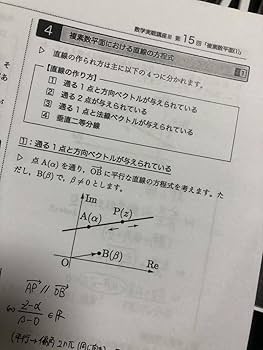 数学実戦講座Ⅲ 第15回「複素数平面(1)」
4 複素数平面における直線の方程式
▷ 直線の作られ方は主に以下の4つに分かれます。
【直線の作り方】
① 通る1点と方向ベクトルが与えられている
② 通る2点が与えられている
③ 通る1点と法線ベクトルが与えられている
④ 垂直二等分線
①:通る1点と方向ベクトルが与えられている
▷ 点A(α)を通り,OBに平行な直線の方程式を考えます。た
だし,B(β)で,β≠0とします。
Im
P(z)
A(α)
B(β)
O
Re
AP // OB
⇔ z-α / β-0 ∈ R